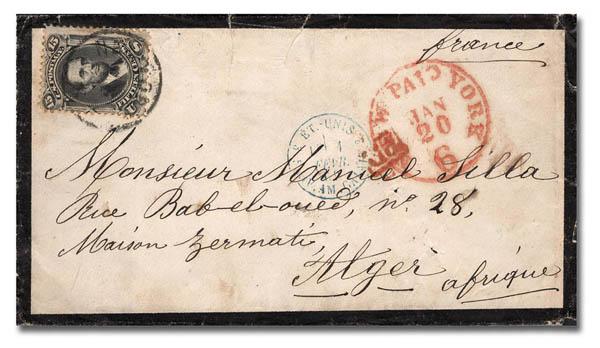 france
NEW PAID YORK
JAN
20
6
ET. UNIS
FEVR.
AM.
Monsieur Manuel Silla
Rue Bab-el-oued, nº 28,
Maison Zermati,
Alger
afrique